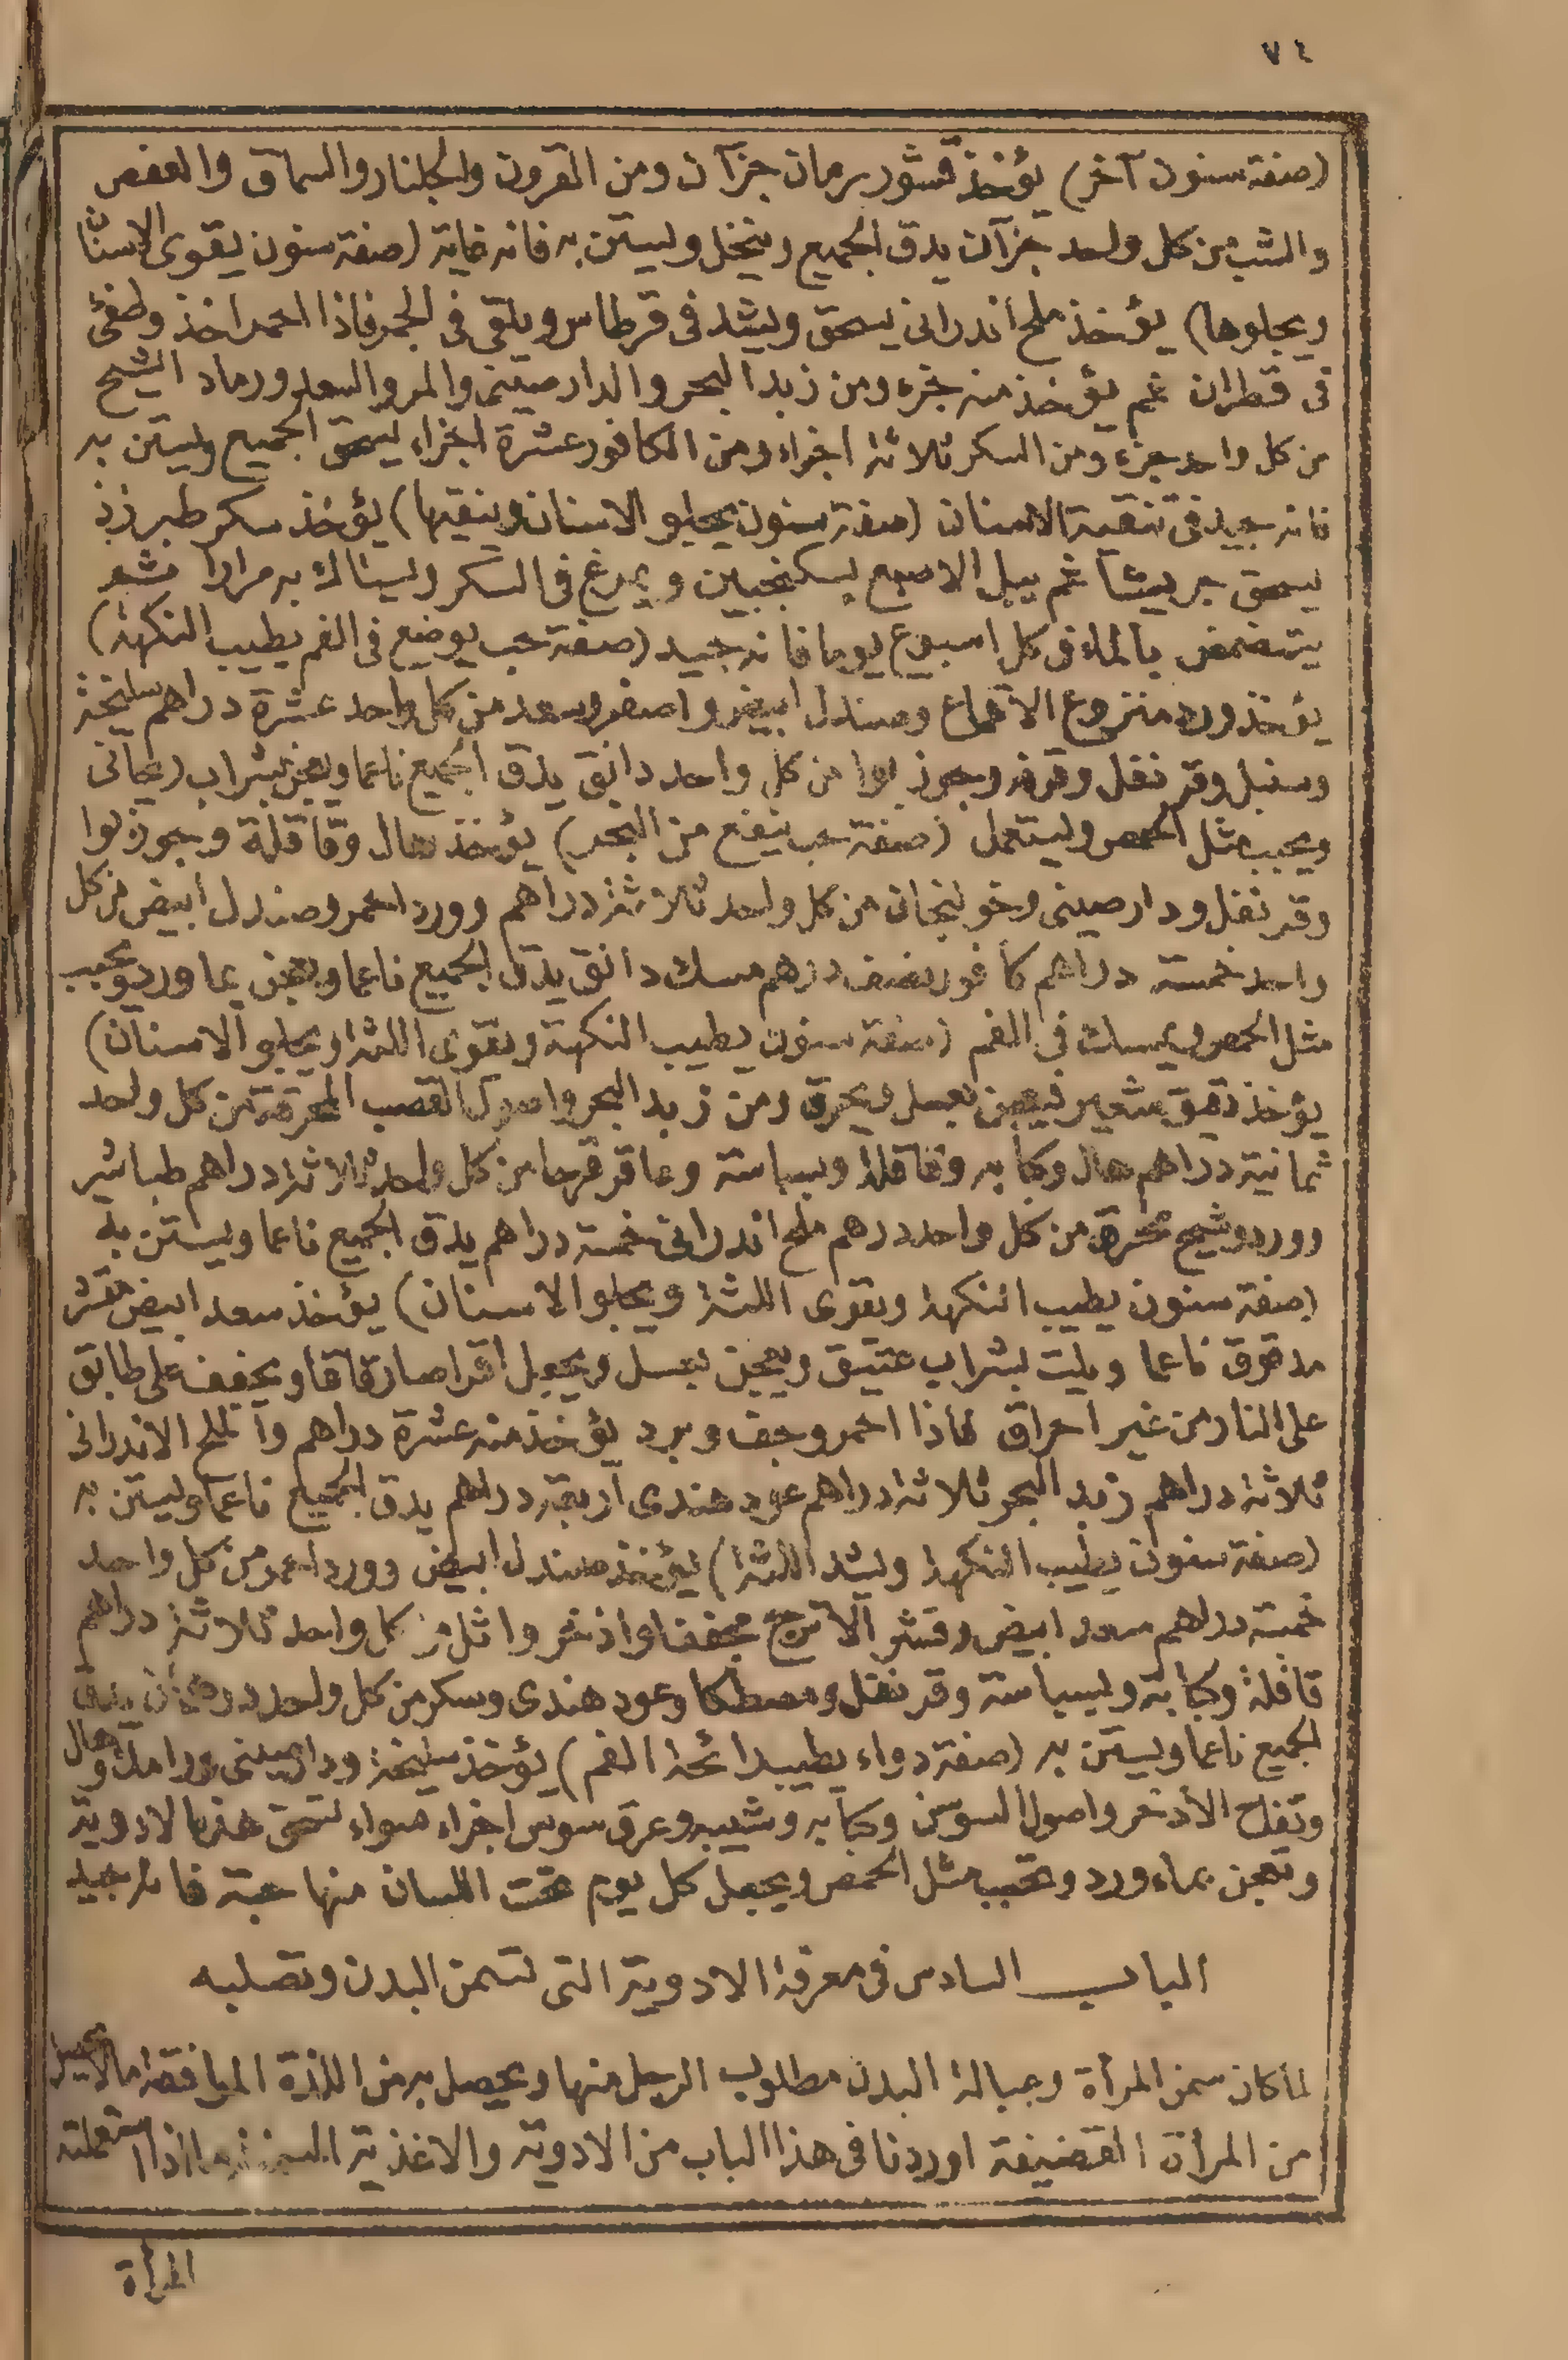 ٧٤
(صفة سنون آخر) يؤخذ قشور رمان جزآن ومن القرون والجلنار والسماق والعفص
والشب من كل واحد جزآن يدق الجميع وينخل ويستن به فانه غاية (صفة سنون يقوى الاسنان
ويجلوها) يؤخذ ملح اندرانى يسحق ويشد فى قرطاس ويلقى فى الجمر فاذا احمر اخذ وطفئ
فى قطران ثم يؤخذ منه جزء ومن زبد البحر والدارصينى والمر والسعد ورماد الشيح
من كل واحد جزء ومن السكر ثلاثة اجزاء ومن الكافور عشرة اجزاء يسحق الجميع ويستن به
فانه جيد فى تنقية الاسنان (صفة سنون يجلو الاسنان وينقيها) يؤخذ سكر طبرزذ
يسحق جريشا ثم يبل الاصبع بسكنجبين ويمرغ فى السكر ويستاك به مرارا ثم
يتمضمض بالماء فى كل اسبوع يوما فانه جيد (صفة حب يوضع فى الفم يطيب النكهة)
يؤخذ ورد منزوع الاقماع وصندل ابيض واصفر وسعد من كل واحد عشرة دراهم سليخة
وسنبل وقرنفل وقرفه وجوز بوا من كل واحد دانق يدق الجميع ناعما ويعجن بشراب ريحانى
ويحبب مثل الحمص ويستعمل (صفة حب ينفع من البخر) يؤخذ هال وقاقلة وجوز بوا
وقرنفل ودارصينى وخولنجان من كل واحد ثلاثة دراهم وورد احمر وصندل ابيض من كل
واحد خمسة دراهم كافور نصف درهم مسك دانق يدق الجميع ناعما ويعجن بماورد ويحبب
مثل الحمص ويمسك فى الفم (صفة سنون يطيب النكهة ويقوى اللثة ويجلو الاسنان)
يؤخذ دقيق شعير فيعجن بعسل ويحرق ومن زبد البحر واصول القصب المحرقة من كل واحد
ثمانية دراهم هال وكبابه وقاقلة وبسباسة وعاقر قرحا من كل واحد ثلاثة دراهم طباشير
وورد وشيح محرق من كل واحد درهم ملح اندرانى خمسة دراهم يدق الجميع ناعما ويستن به
(صفة سنون يطيب النكهة ويقوى اللثة ويجلو الاسنان) يؤخذ سعد ابيض مقشر
مدقوق ناعما ويلت بشراب عتيق ويعجن بعسل ويجعل اقراصا رقاقا ويجفف على طابق
على النار من غير احراق فاذا احمر وجف وبرد يؤخذ منه عشرة دراهم والملح الاندرانى
ثلاثة دراهم زبد البحر ثلاثة دراهم عود هندى اربعة دراهم يدق الجميع ناعما ويستن به
(صفة سنون يطيب النكهة ويشد اللثة) يؤخذ صندل ابيض وورد احمر من كل واحد
خمسة دراهم سعد ابيض وقشر الاترج مجففا واذخر واثل من كل واحد ثلاثة دراهم
قاقلة وكبابة وبسباسة وقرنفل ومصطكا وعود هندى وسكر من كل واحد درهمان يدق
الجميع ناعما ويستن به (صفة دواء يطيب رائحة الفم) يؤخذ سليخة ودارصينى ورامك وهال
وتفاح الاذخر واصول السوسن وكبابه وشيبه وعرق سوس اجزاء سواء تسحق هذه الادوية
وتعجن بماء ورد وتحبب مثل الحمص ويجعل كل يوم تحت اللسان منها حبة فانه جيد
الباب السادس فى معرفة الادوية التى تسمن البدن وتصلبه
لما كان سمن المرأة وعبالة البدن مطلوب الرجل منها ويحصل به من اللذة الموافقة ما لا يحصل
من المرأة القضيفة اوردنا فى هذا الباب من الادوية والاغذية المسمنة ما اذا استعملته
المرأة